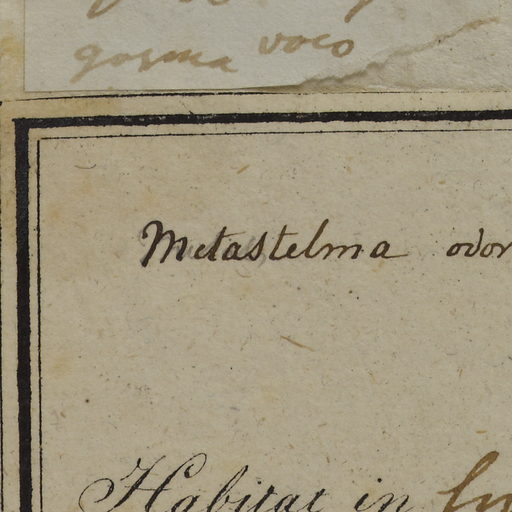 gosma voco
Metastelma odor
Habitat in